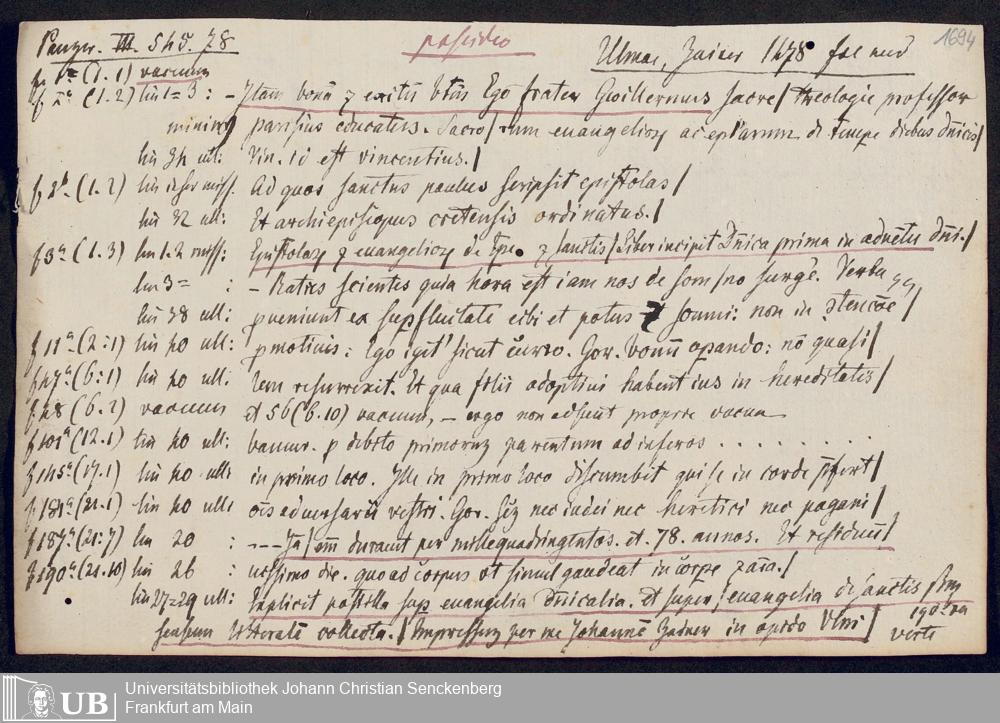 Panzer. III. 545. 78 possideo Ulmae, Zainer 1478 fol 1694
f 1ᵃ (1. 1) vacuum
f 2ᵃ (1. 2) lin 1-3: - Ego frater Guillermus sacre / theologie professor
minimus parisius educatus. Sacro/rum euangeliorum ac epl'arum de tempe diebus dnicis/
lin 34 ult: Vin. id est vincentius./
f 2ᵇ (1. 2) lin Ad quos sanctus paulus scripsit epistolas/
lin 32 ult: Et archiepiscopus cretensis ordinatus./
f 3ᵃ (1. 3) lin 1-2 Epistolarz z euangeliorz de tpe. z sanctis/ Liber incipit Dnica prima in aduetu dni./
lin 3= : - Fratres scientes quia hora est iam nos de som/no surge. Verba
lin 38 ult: pueniunt ex supfluitate cibi et potus z somni: non in
f 11ᵃ (2:1) lin 40 ult: Ego igit' sicut curro. Gor. bonu opando: no quasi/
f 47ᵃ (6:1) lin 40 ult: rem resurrexit. Et qua filii adoptiui habent ius in hereditatis/
f 48 (6. 2) vacuum et 56 (6. 10) vacuum, - ergo non adsunt vacua
f 101ᵃ (12. 1) lin 40 ult: bamur. p debito primorum parentum ad inferos . . . . . . . . . .
f 145ᵃ (17. 1) lin 40 ult: in primo loco. Ille in primo loco discumbit qui se in corde
f 181ᵃ (21. 1) lin 40 ult: ois aduersarii vestri. Gor. sz nec iudei nec heretici nec pagani/
f 187ᵃ (21:7) lin 20 : durant per millequadringentos. et. 78. annos. Et residuu/
f 190ᵃ (21. 10) lin 26 : uissimo die. quo ad corpus ut simul gaudeat in
lin 27=29 ult: Explicit postilla sup euangelia dnicalia. Et super / euangelia de sanctis
sensum litterale collecta./ Impressum per me Johanne Zainer in opido Ulm/ verte
Universitätsbibliothek Johann Christian Senckenberg
UB Frankfurt am Main